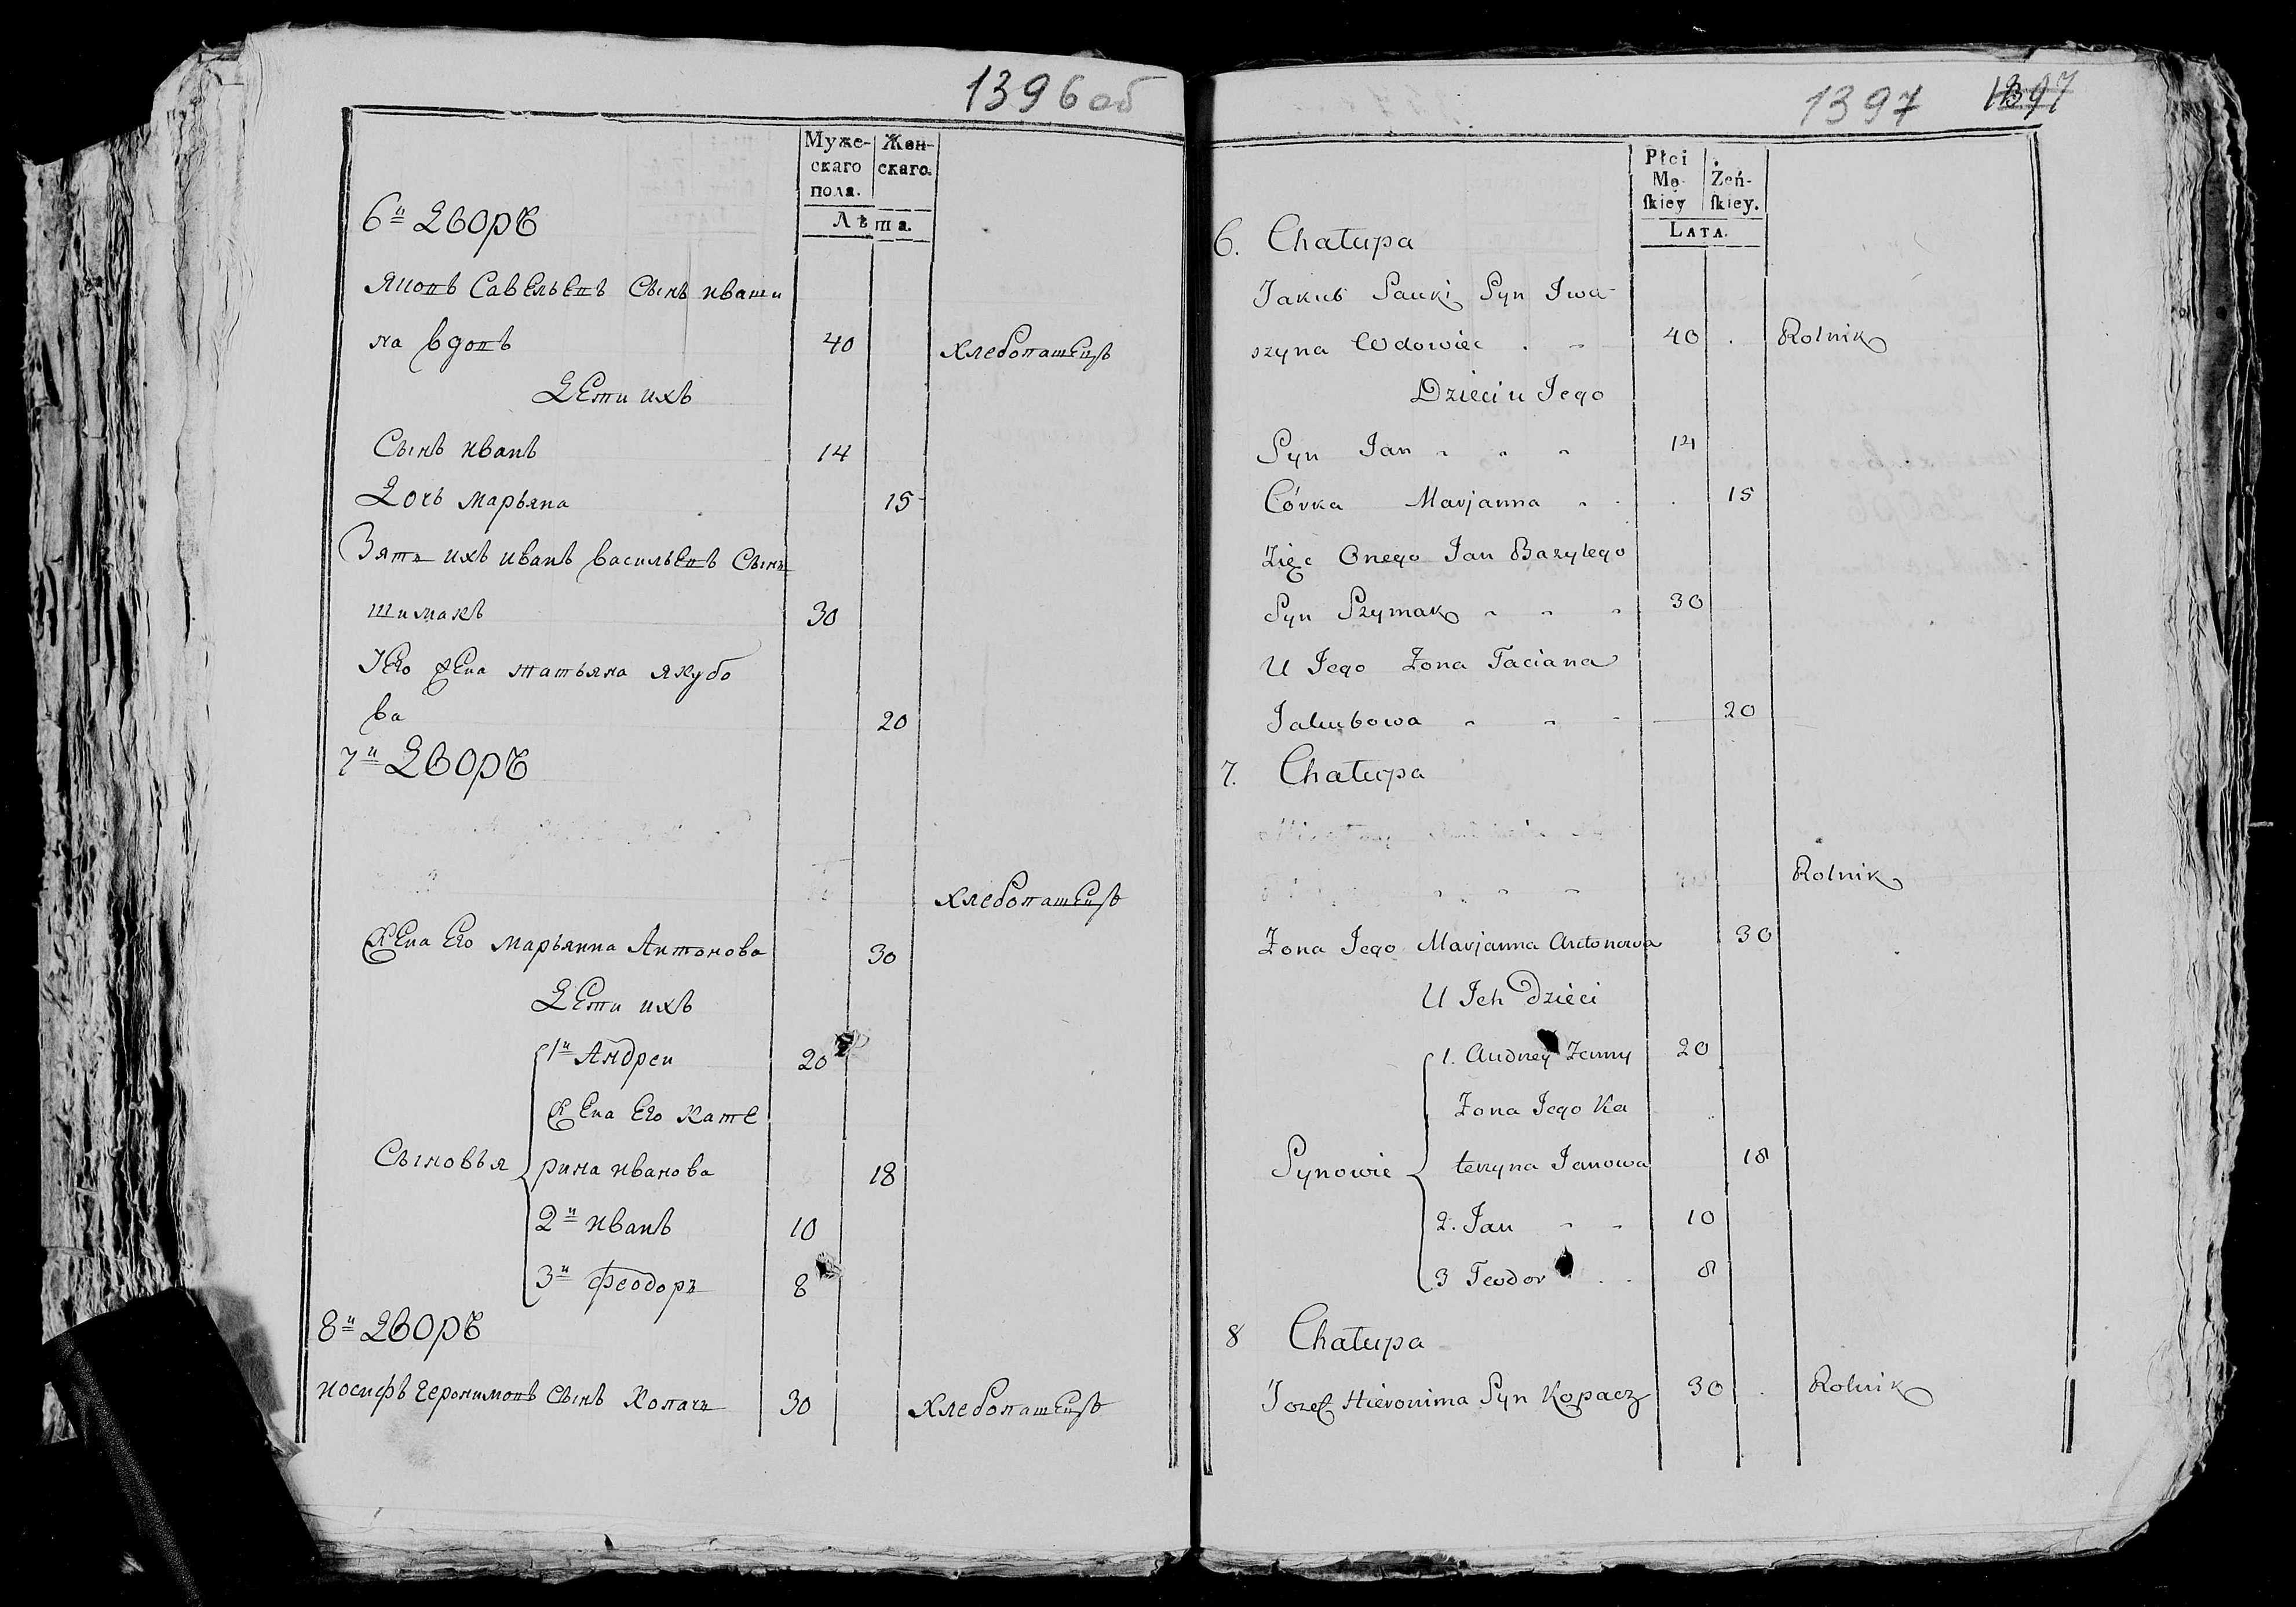 1396об
Муже-
скаго
пола.
Жен-
скаго.
Лѣта.
6й Дворъ
Яковъ Савельевъ Сынъ иваши
на вдовъ 40 хлебопашецъ
Дети ихъ
Сынъ иванъ 14
Дочь марьяна 15
Зять ихъ иванъ васильевъ Сынъ
шимакъ 30
Его жена татьяна якубо
ва 20
7й Дворъ
хлебопашецъ
жена Его марьянна Антонова 30
Дети ихъ
1й Андреи 20
жена Его кате
Сыновья рина иванова 18
2й иванъ 10
3й феодоръ 8
8й Дворъ
иосифъ Iеронимовъ Сынъ Копачъ 30 хлебопашецъ
1397 1397
Płci
Mę-
ſkiey
Żeń-
ſkiey.
LATA.
6. Chałupa
Jakub Sauki Syn Iwa-
szyna Wdowiec 40 Rolnik
Dzieci u Jego
Syn Jan 14
Córka Marjanna 15
Zięc Onego Jan Bazylego
Syn Szymak 30
U Jego Zona Taciana
Jakubowa 20
7. Chałupa
Rolnik
Zona Jego Marjanna Antonowa 30
U Ich Dzieci
1. Andrey Zenny 20
Zona Jego Ka
Synowie terzyna Janowa 18
2. Jan 10
3 Teodor 8
8 Chałupa
Jozef Hieronima Syn Kopacz 30 Rolnik